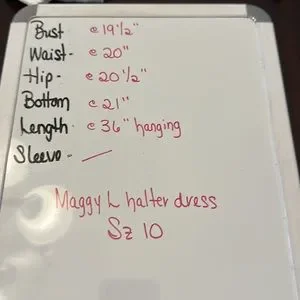 Bust c 19 1/2"
Waist - c 20"
Hip - c 20 1/2"
Bottom c 21"
Length - c 36" hanging
Sleeve - —
Maggy L halter dress
Sz 10